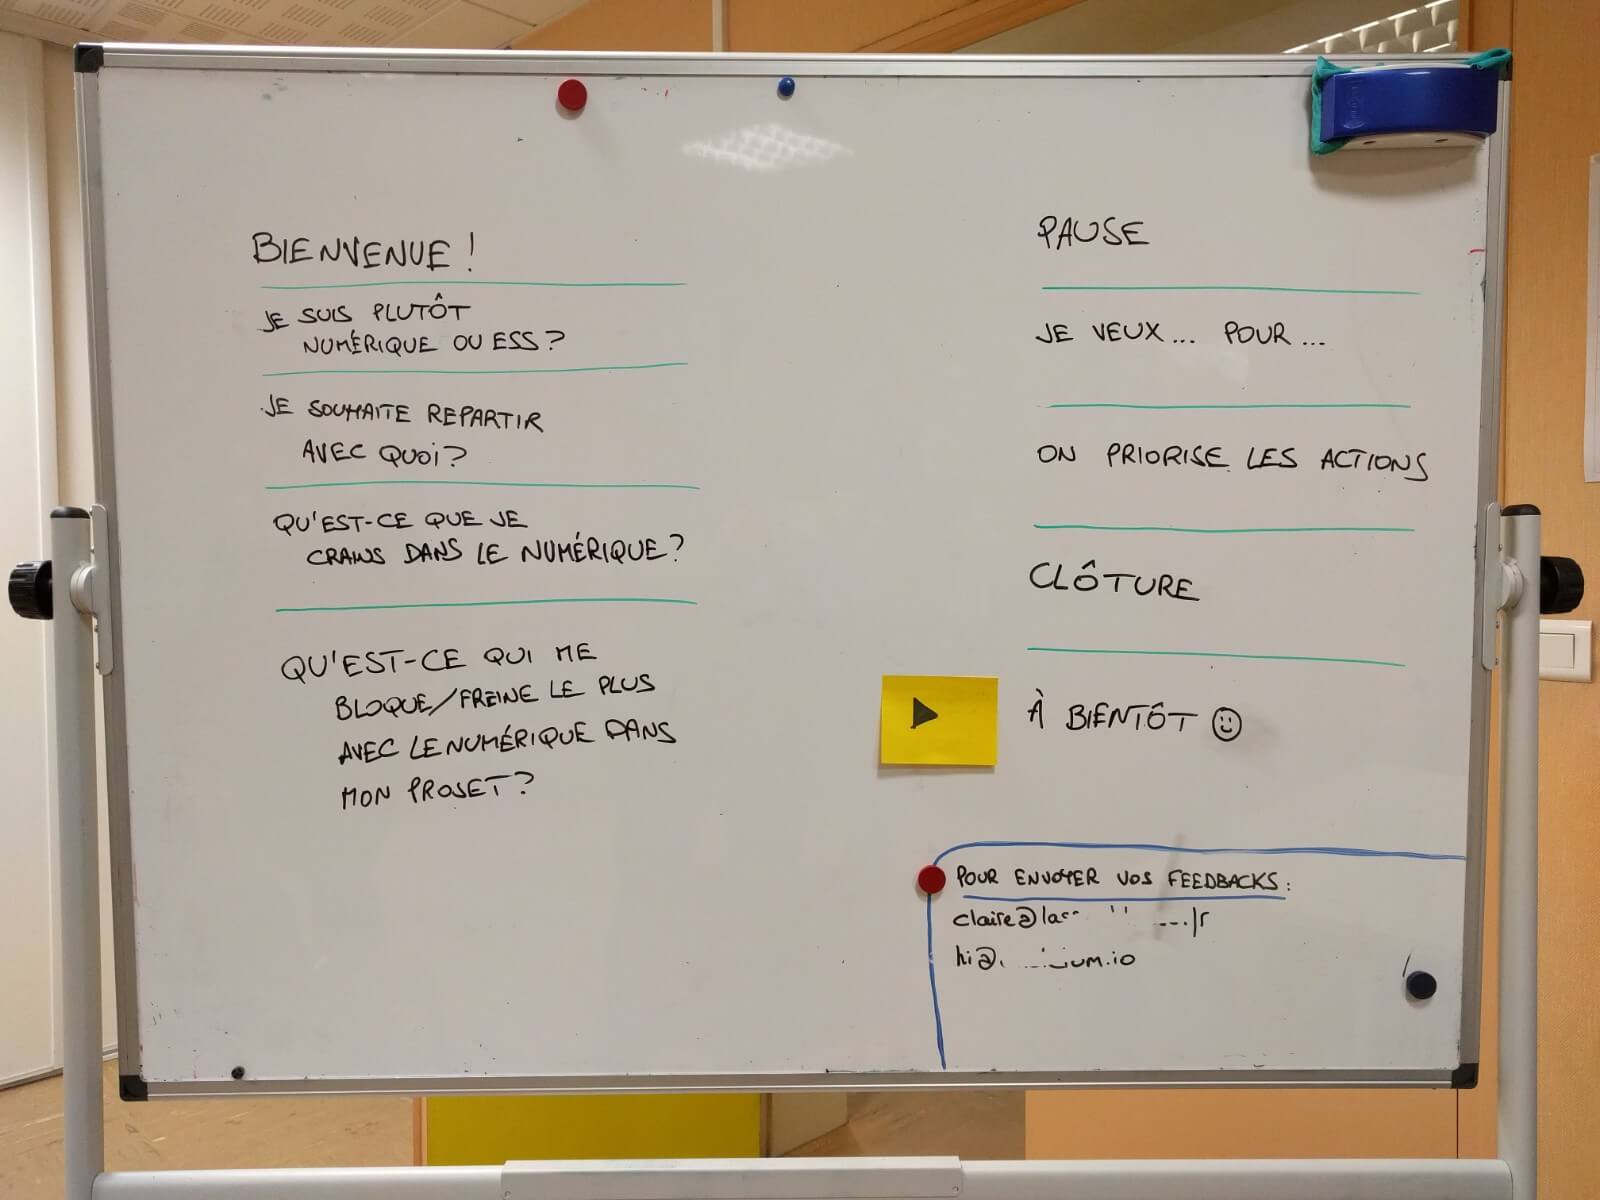 BIENVENUE !
JE SUIS PLUTÔT
NUMÉRIQUE OU ESS ?
JE SOUHAITE REPARTIR
AVEC QUOI ?
QU'EST-CE QUE JE
CRAINS DANS LE NUMÉRIQUE ?
QU'EST-CE QUI ME
BLOQUE/FREINE LE PLUS
AVEC LE NUMÉRIQUE DANS
MON PROJET ?
PAUSE
JE VEUX... POUR...
ON PRIORISE LES ACTIONS
CLÔTURE
À BIENTÔT ☺
POUR ENVOYER VOS FEEDBACKS :
claire@la
hi@
um.io